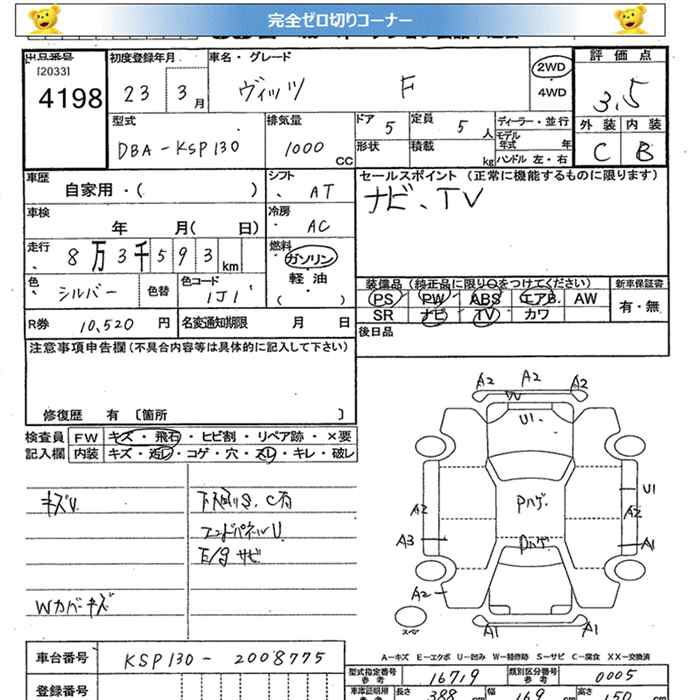 完全ゼロ切りコーナー
出品番号 初度登録年月 車名・グレード 評価点
[2033] 4198 23 3月 ヴィッツ F 2WD 4WD 3.5
型式 排気量 ドア 5 定員 5人 ディーラー・並行 外装 内装
DBA-KSP130 1000CC 形状 積載 kg モデル年式 年 ハンドル 左・右 C B
車歴 シフト セールスポイント (正常に機能するものに限ります)
自家用・( ) AT ナビ、TV
車検 冷房
年 月( 日) AC
走行 燃料
8万3千593km ガソリン
軽・油
( )
色 色替 色コード 装備品 (純正品に限り○をつけてください) 新車保証書
シルバー 1J1 PS PW ABS エアB. AW 有・無
SR ナビ TV カワ
R券 10,520円 名変通知期限 月 日 後日品
注意事項申告欄(不具合内容等は具体的に記入して下さい)
修復歴 有 〔箇所 〕
検査員 FW キズ・飛石・ヒビ割・リペア跡・×要
記入欄 内装 キズ・汚レ・コゲ・穴・スレ・キレ・破レ
キズU 下廻りS、C有
エンドパネルU
E/gサビ
Wカバーキズ
A2 A2 A2
W
U1
U1
A2 Pハゲ A2
A3 Pハゲ A1
A2
スペア A1 A1
A−キズ E−エクボ U−凹み W−補修跡 S−サビ C−腐食 XX−交換済
車台番号 KSP130-2008775
型式指定番号 参考 16719 類別区分番号 参考 0005
登録番号 車庫証明用 参考 長さ 388 cm 幅 169 cm 高さ 150 cm